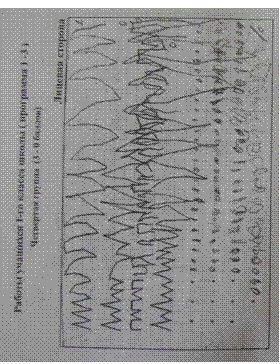 Работы учащихся 1-го класса школы ( программа 1 -3 )
Четвертая группа (3 - 0 баллов)
Лицевая сторона